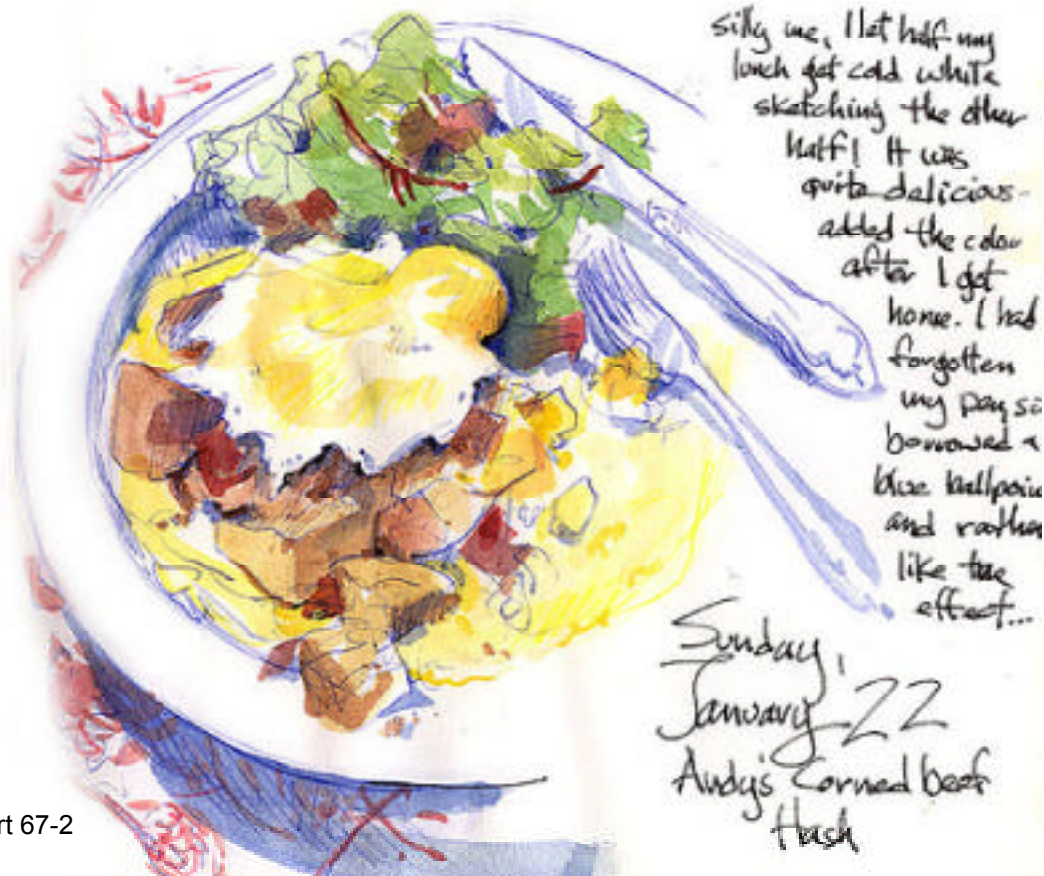 silly me, I let half my
lunch get cold while
sketching the other
half! It was
quite delicious-
added the colour
after I got
home. I had
forgotten
my pen so
borrowed a
blue ballpoin
and rather
like the
effect...
Sunday,
January 22
Andy's Corned beef
Hash
rt 67-2